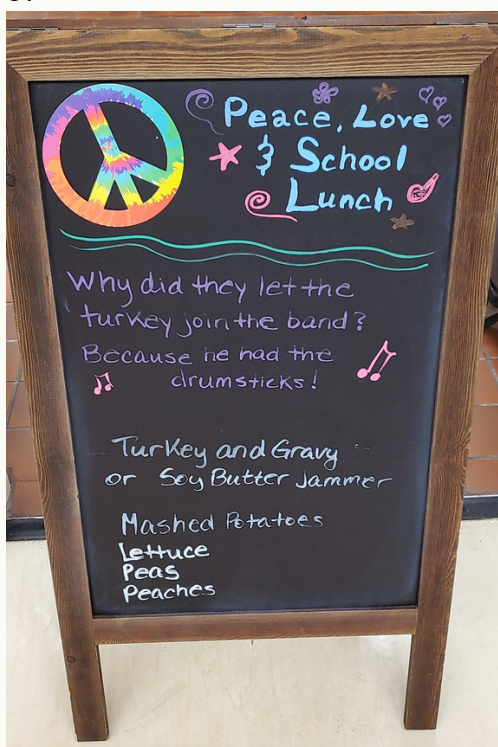 Peace, Love
& School
Lunch
Why did they let the
turkey join the band?
Because he had the
drumsticks!
Turkey and Gravy
or Soy Butter Jammer
Mashed Potatoes
Lettuce
Peas
Peaches